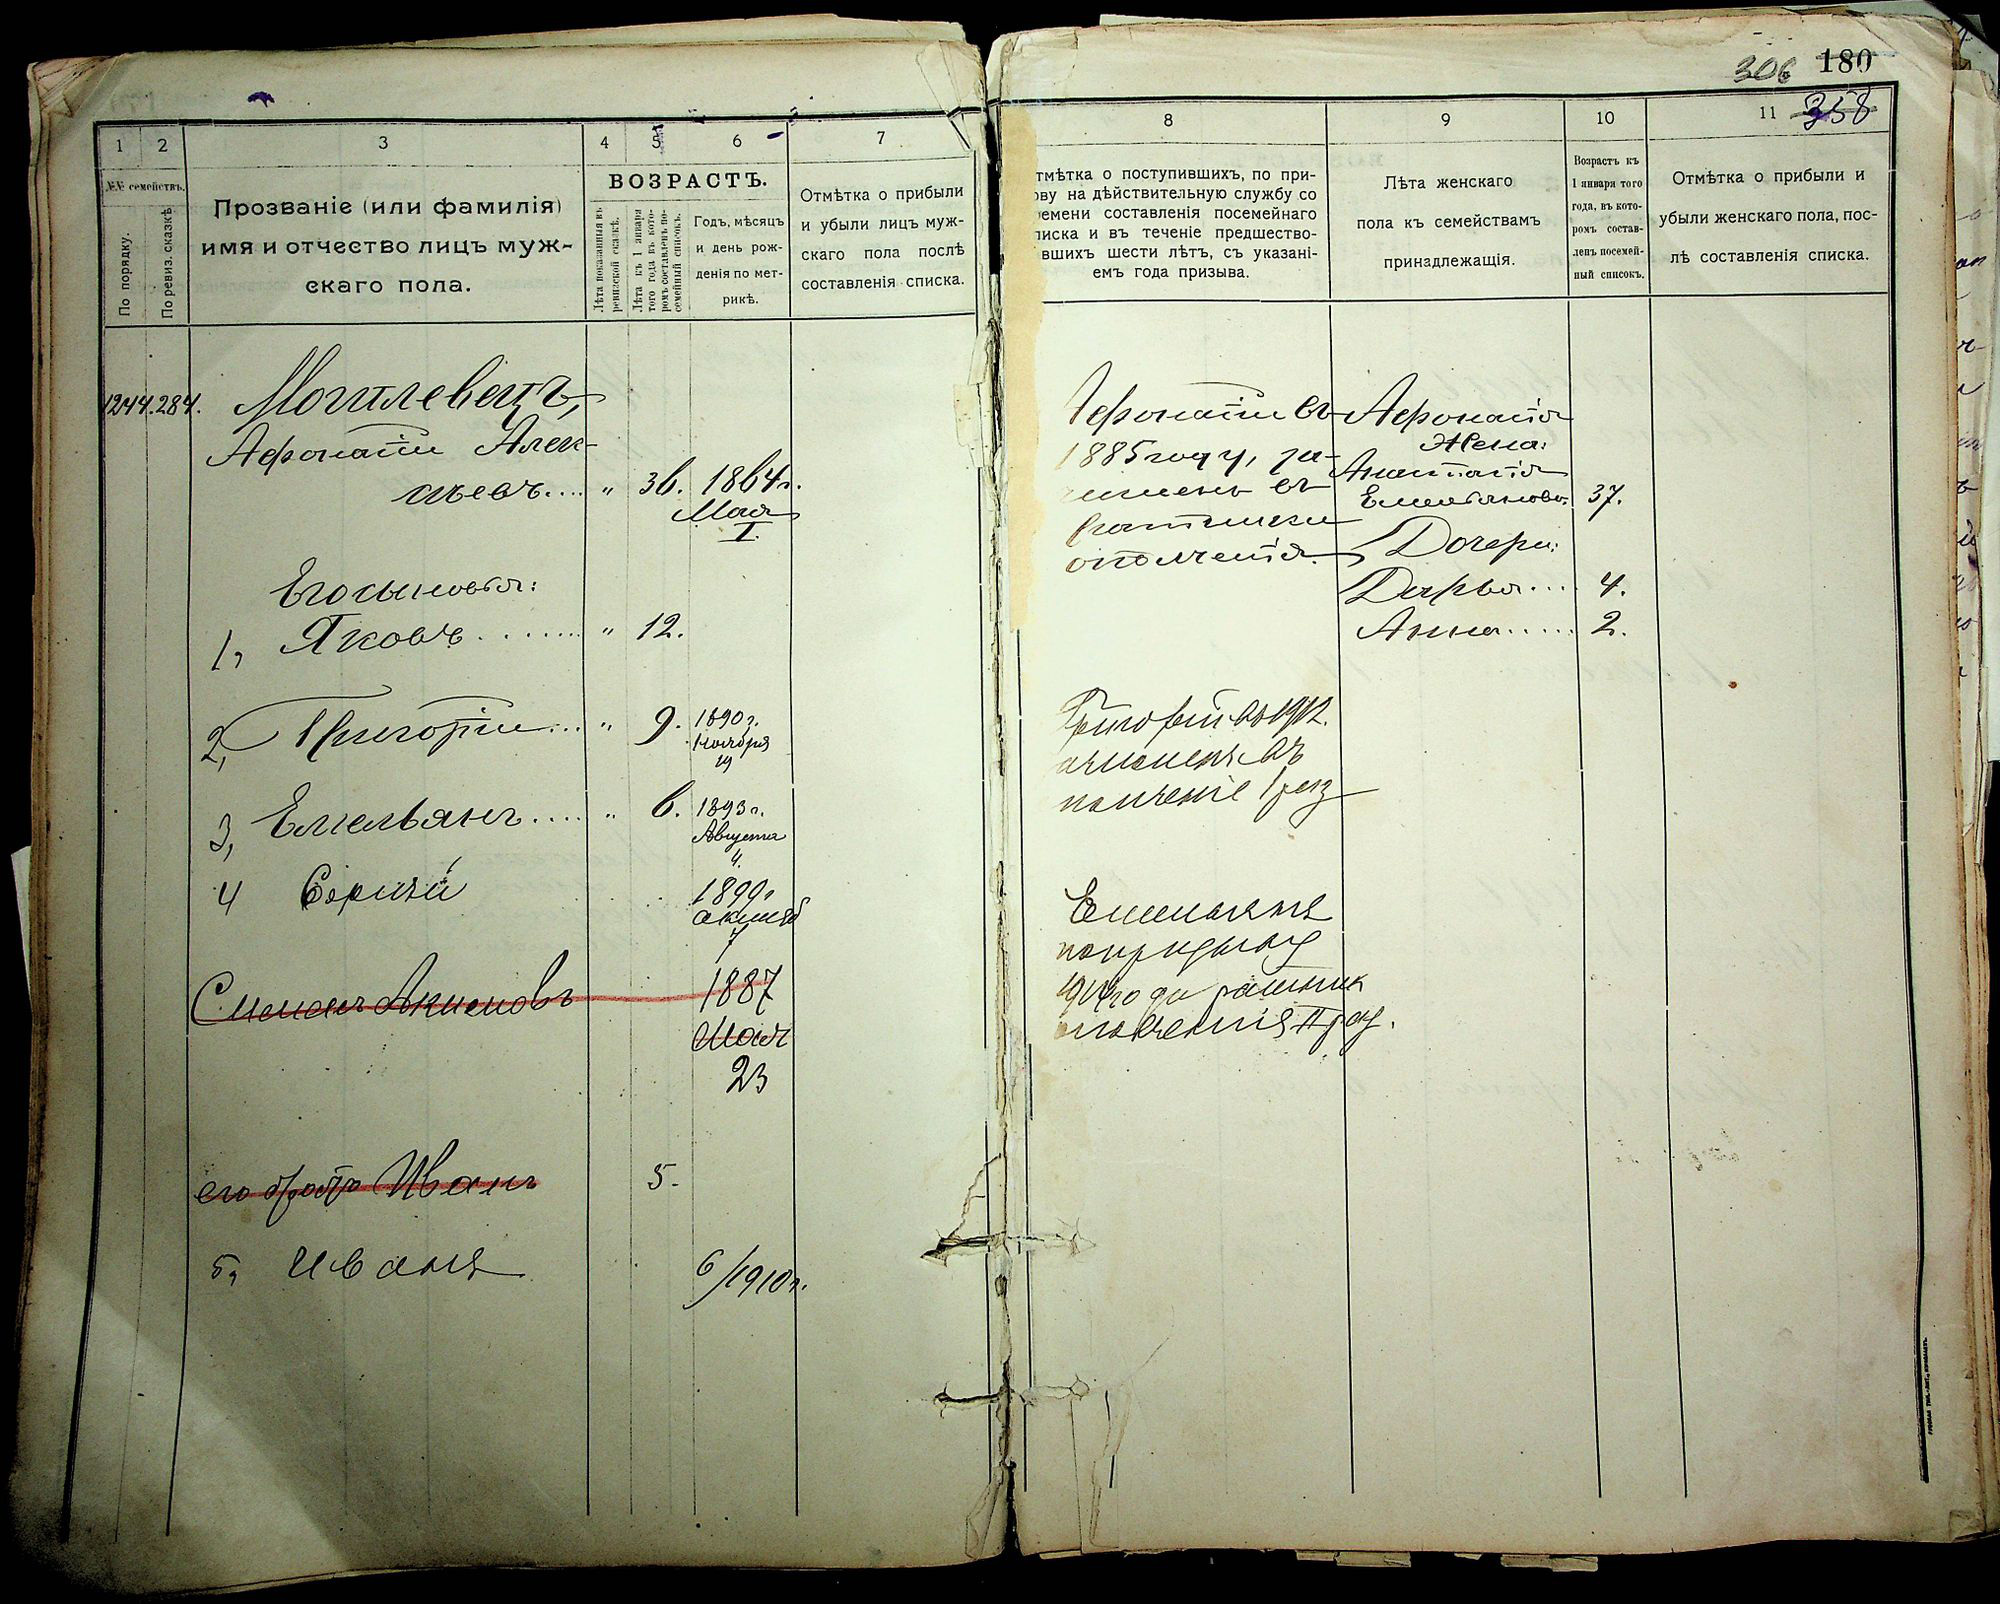 306 180
358
1 2 3 4 5 6 7
№№ семействъ.
По порядку.
По ревиз. сказкѣ
Прозваніе (или фамилія)
имя и отчество лицъ муж-
скаго пола.
ВОЗРАСТЪ.
Лѣта показанныя въ
ревизской сказкѣ.
Лѣта къ 1 января
того года въ кото-
ромъ составленъ по-
семейный списокъ.
Годъ, мѣсяцъ
и день рож-
денія по мет-
рикѣ.
Отмѣтка о прибыли
и убыли лицъ муж-
скаго пола послѣ
составленія списка.
1244. 284. Могилевецъ,
Афонатій Алек-
сѣевъ.... " 36. 1864г.
Мая
1.
Его сыновья:
1, Яковъ........ " 12.
2, Григорій... " 9. 1890г.
Ноября
19
3, Емельянъ..... " 6. 1893г.
Августа
4.
4 Сергѣй 1899г
октяб
7
Семенъ Акимовъ 1887
Мая
23
его братъ Иванъ 5.
5, Иванъ 6/1910г.
8 9 10 11
тмѣтка о поступившихъ, по при-
ову на дѣйствительную службу со
ремени составленія посемейнаго
писка и въ теченіе предшество-
вшихъ шести лѣтъ, съ указані-
емъ года призыва.
Лѣта женскаго
пола къ семействамъ
принадлежащія.
Возрастъ къ
1 января того
года, въ кото-
ромъ состав-
ленъ посемей-
ный списокъ.
Отмѣтка о прибыли и
убыли женскаго пола, пос-
лѣ составленія списка.
Афонатій въ
1885 году, за-
численъ въ
ратники
ополченія.
Афонатія
Жена:
Анастасія
Емельянова. 37.
Дочери:
Дарья.... 4.
Анна..... 2.
Григорій въ 1912.
зачисленъ въ
полченіе 1 раз
Емельянъ
по призыву
1914 года ратник
ополченія II раз.